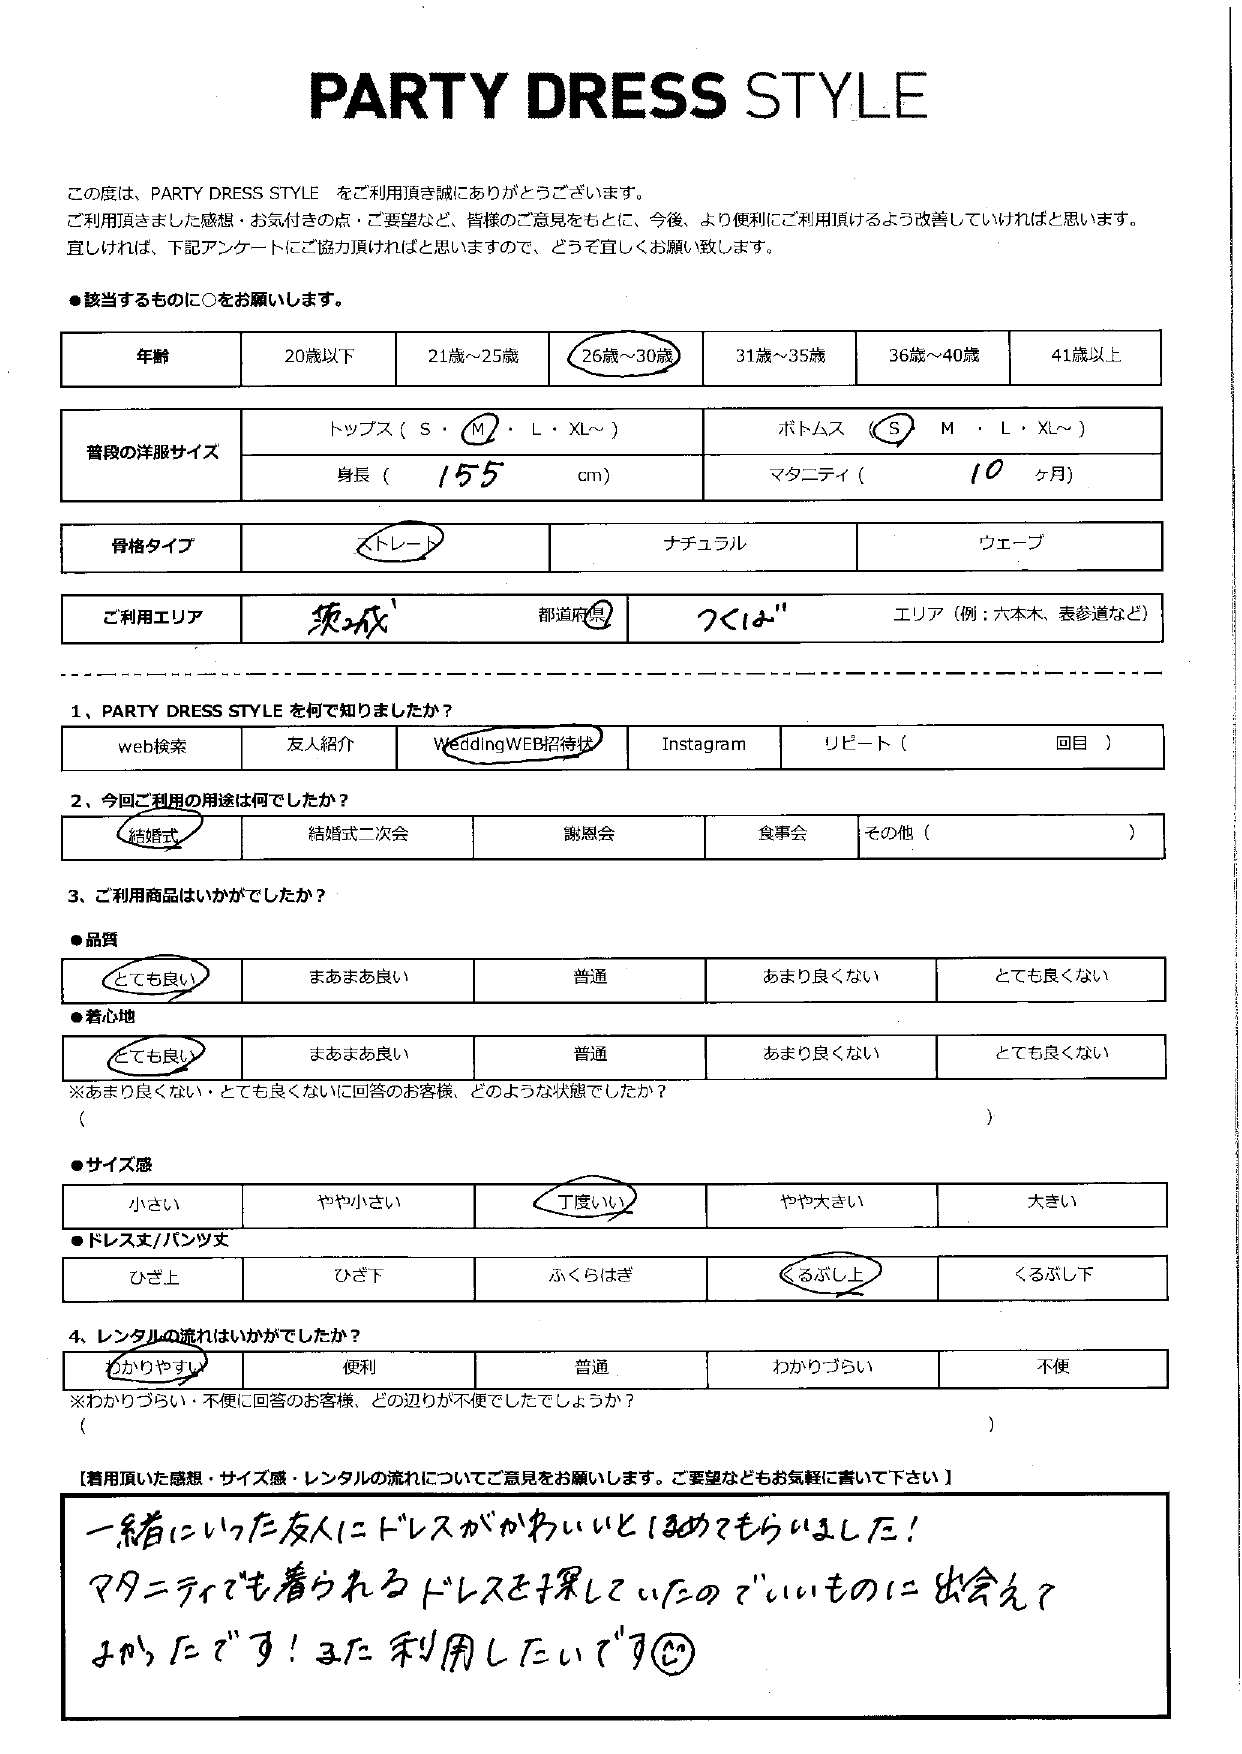 PARTY DRESS STYLE
この度は、PARTY DRESS STYLE をご利用頂き誠にありがとうございます。
ご利用頂きました感想・お気付きの点・ご要望など、皆様のご意見をもとに、今後、より便利にご利用頂けるよう改善していければと思います。
宜しければ、下記アンケートにご協力頂ければと思いますので、どうぞ宜しくお願い致します。
●該当するものに○をお願いします。
年齢 20歳以下 21歳～25歳 26歳～30歳 31歳～35歳 36歳～40歳 41歳以上
普段の洋服サイズ トップス ( S ・ M ・ L ・ XL～ ) ボトムス ( S M ・ L ・ XL～ )
身長 ( 155 cm) マタニティ ( 10 ヶ月)
骨格タイプ ストレート ナチュラル ウェーブ
ご利用エリア 茨城 都道府県 つくば エリア（例：六本木、表参道など）
1、PARTY DRESS STYLE を何で知りましたか？
web検索 友人紹介 WeddingWEB招待状 Instagram リピート（ 回目 ）
2、今回ご利用の用途は何でしたか？
結婚式 結婚式二次会 謝恩会 食事会 その他（ ）
3、ご利用商品はいかがでしたか？
●品質
とても良い まあまあ良い 普通 あまり良くない とても良くない
●着心地
とても良い まあまあ良い 普通 あまり良くない とても良くない
※あまり良くない・とても良くないに回答のお客様、どのような状態でしたか？
( )
●サイズ感
小さい やや小さい 丁度いい やや大きい 大きい
●ドレス丈/パンツ丈
ひざ上 ひざ下 ふくらはぎ くるぶし上 くるぶし下
4、レンタルの流れはいかがでしたか？
わかりやすい 便利 普通 わかりづらい 不便
※わかりづらい・不便に回答のお客様、どの辺りが不便でしたでしょうか？
( )
【着用頂いた感想・サイズ感・レンタルの流れについてご意見をお願いします。ご要望などもお気軽に書いて下さい 】
一緒にいった友人にドレスがかわいいとほめてもらいました！
マタニティでも着られるドレスを探していたのでいいものに出会えて
よかったです！また利用したいです